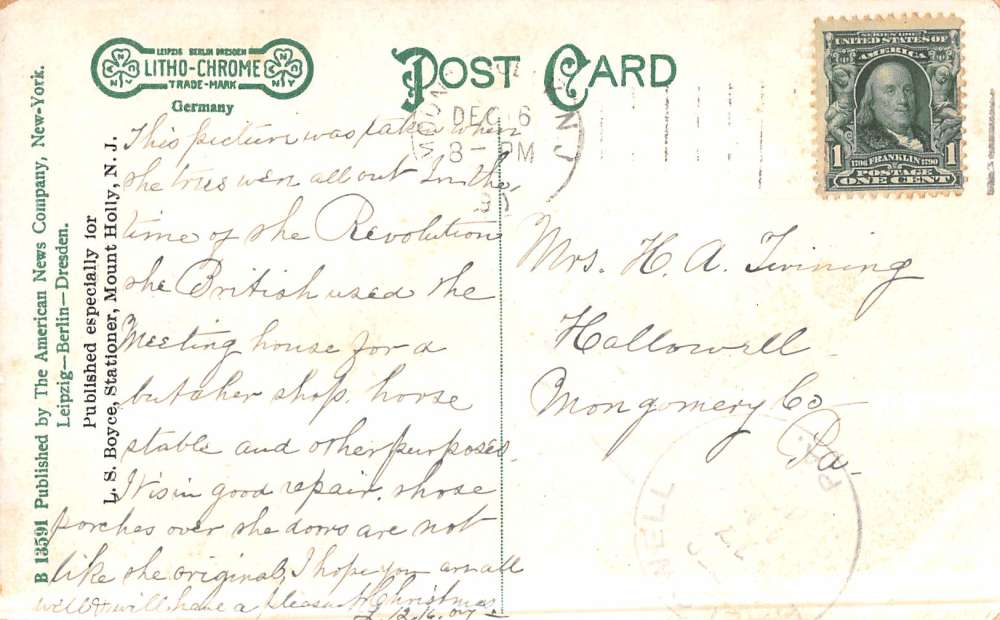 LEIPZIG BERLIN DRESDEN
LITHO-CHROME
TRADE-MARK
Germany
POST CARD
DEC 6
8 - PM
N.J.
SERIES 1902
UNITED STATES OF
AMERICA
1 1706 FRANKLIN 1790 1
POSTAGE
ONE CENT
B 13591 Published by The American News Company, New-York.
Leipzig—Berlin—Dresden.
Published especially for
L. S. Boyce, Stationer, Mount Holly, N. J.
This picture was taken when
the trees were all out In the
time of the Revolution
the British used the
Meeting house for a
butcher shop. horse
stable and other purposes.
It is in good repair. those
porches over the doors are not
like the original, I hope you are all
well & will have a pleasant Christmas
12.16.07
Mrs. H. A. Twining
Hallowell
Montgomery Co
Pa-
NELL